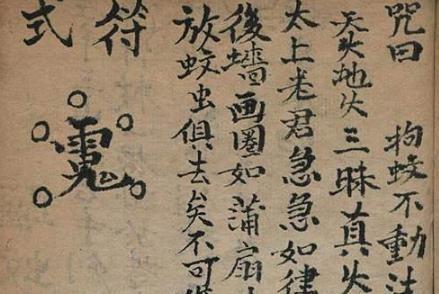 咒曰 拘蚊不動法
天火地火三昧真火
太上老君急急如律
後墻画圈如蒲扇
放蚊虫俱去矣不可
符
式